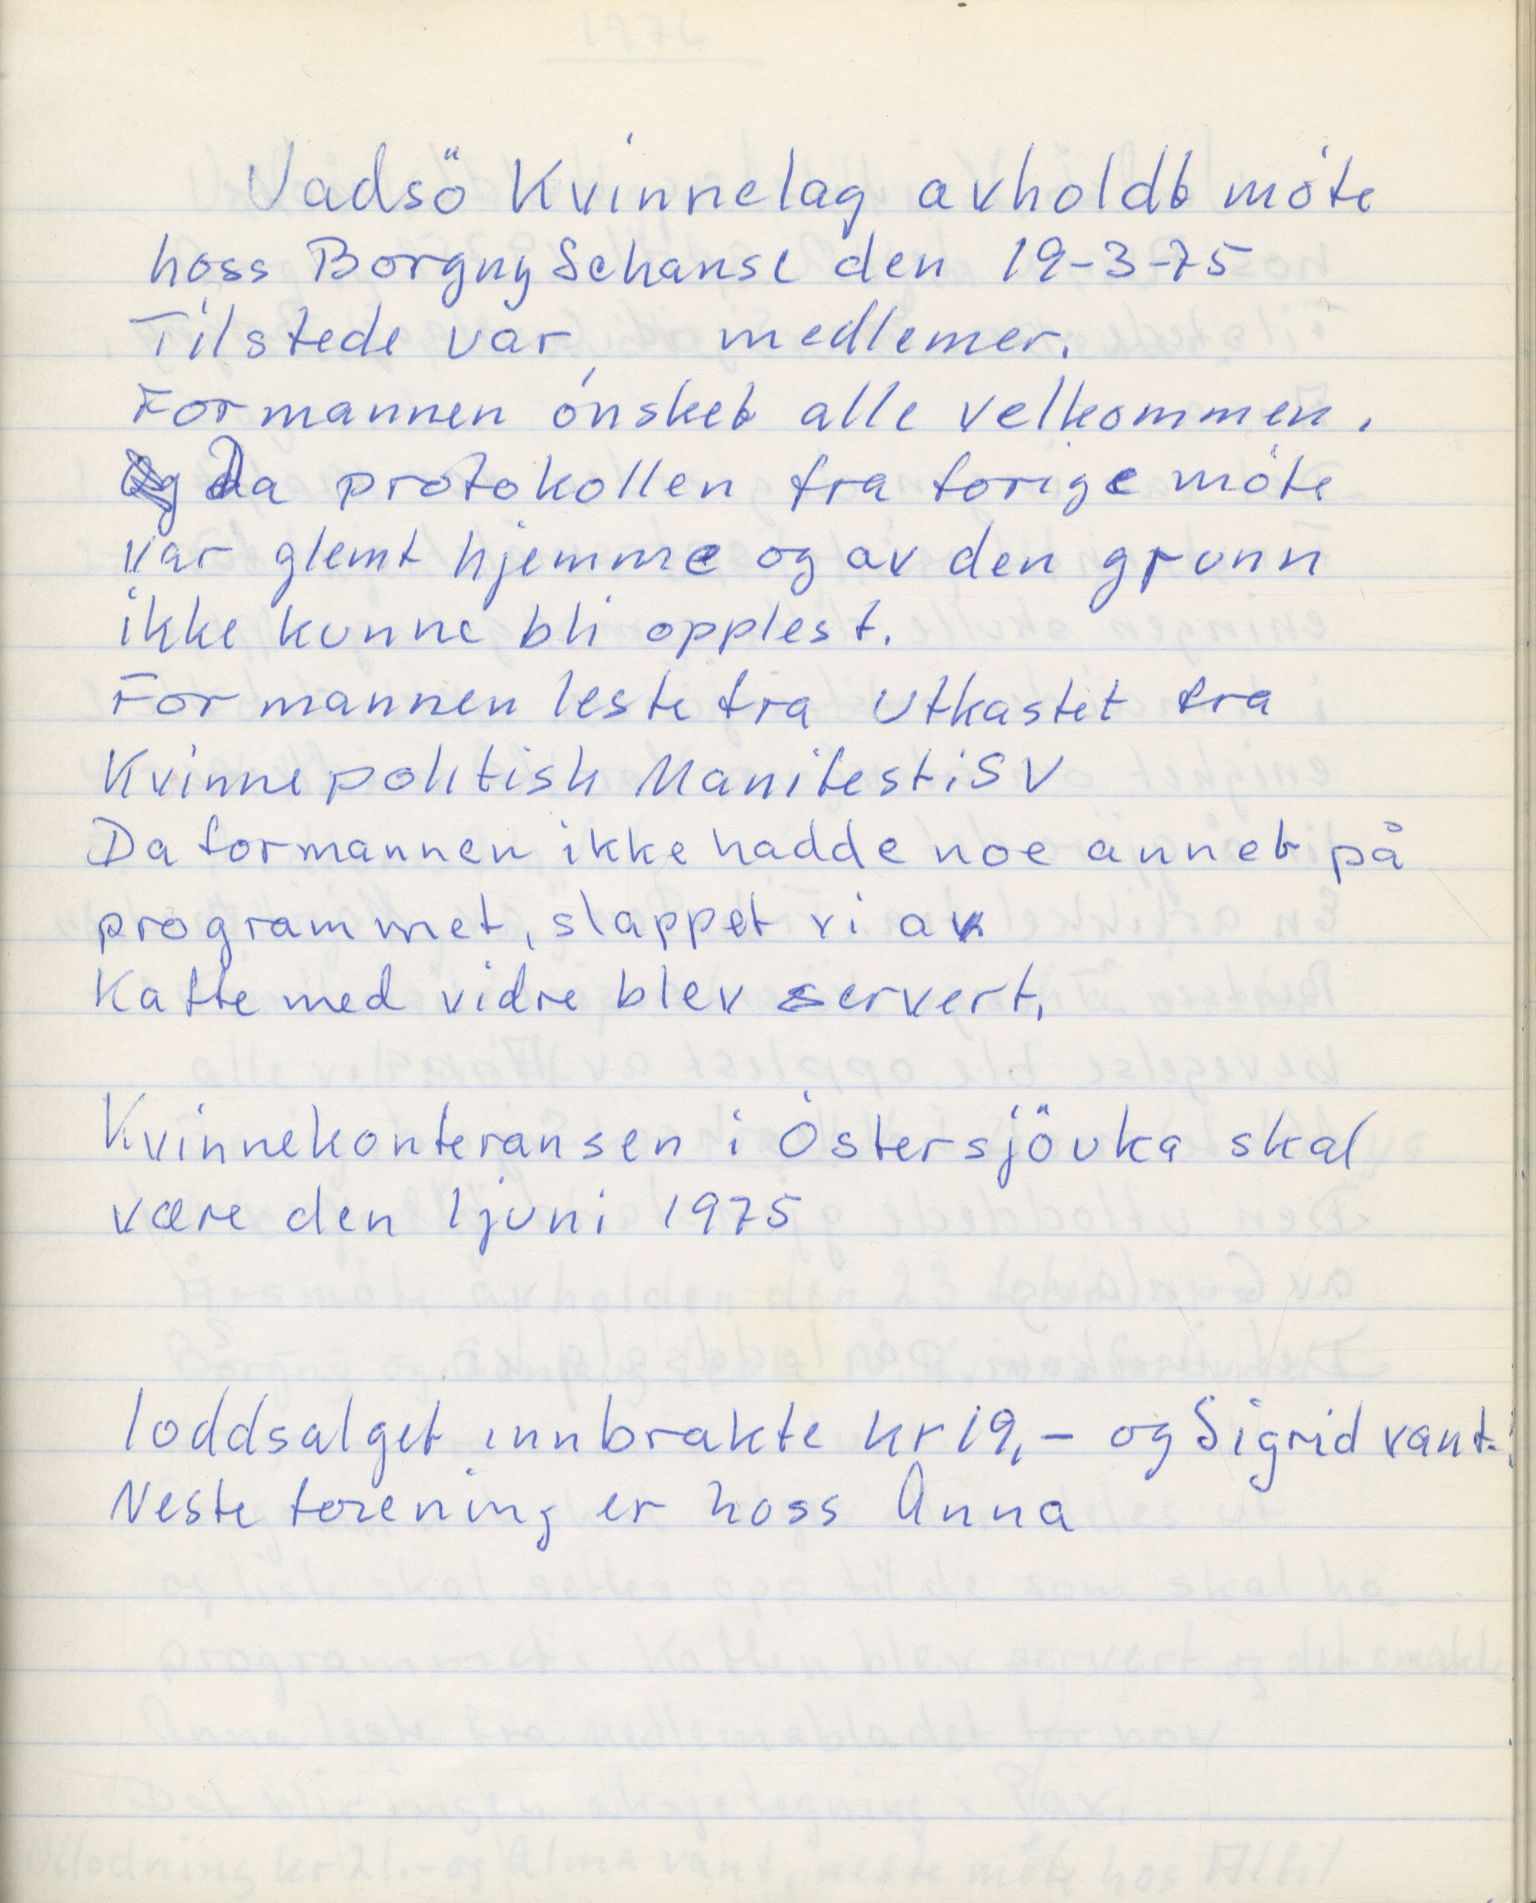 Vadsö Kvinnelag avholdt möte
hoss Borgny Schanse den 19-3-75
Tilstede var, medlemer.
Formannen ónsket alle velkommen.
Da protokollen fra forige móte
var glemt hjemme og av den grunn
ikke kunne bli opplest.
Formannen leste fra Utkastet fra
Kvinnepolitisk Manifest i SV
Da formannen ikke hadde noe annet på
programmet, slappet vi av
Kaffe med vidre blev servert,
Kvinnekonferansen i Óstersjöuka skal
være den 1 juni 1975
loddsalget innbrakte kr 19,- og Sigrid vant.
Neste forening er hoss Anna